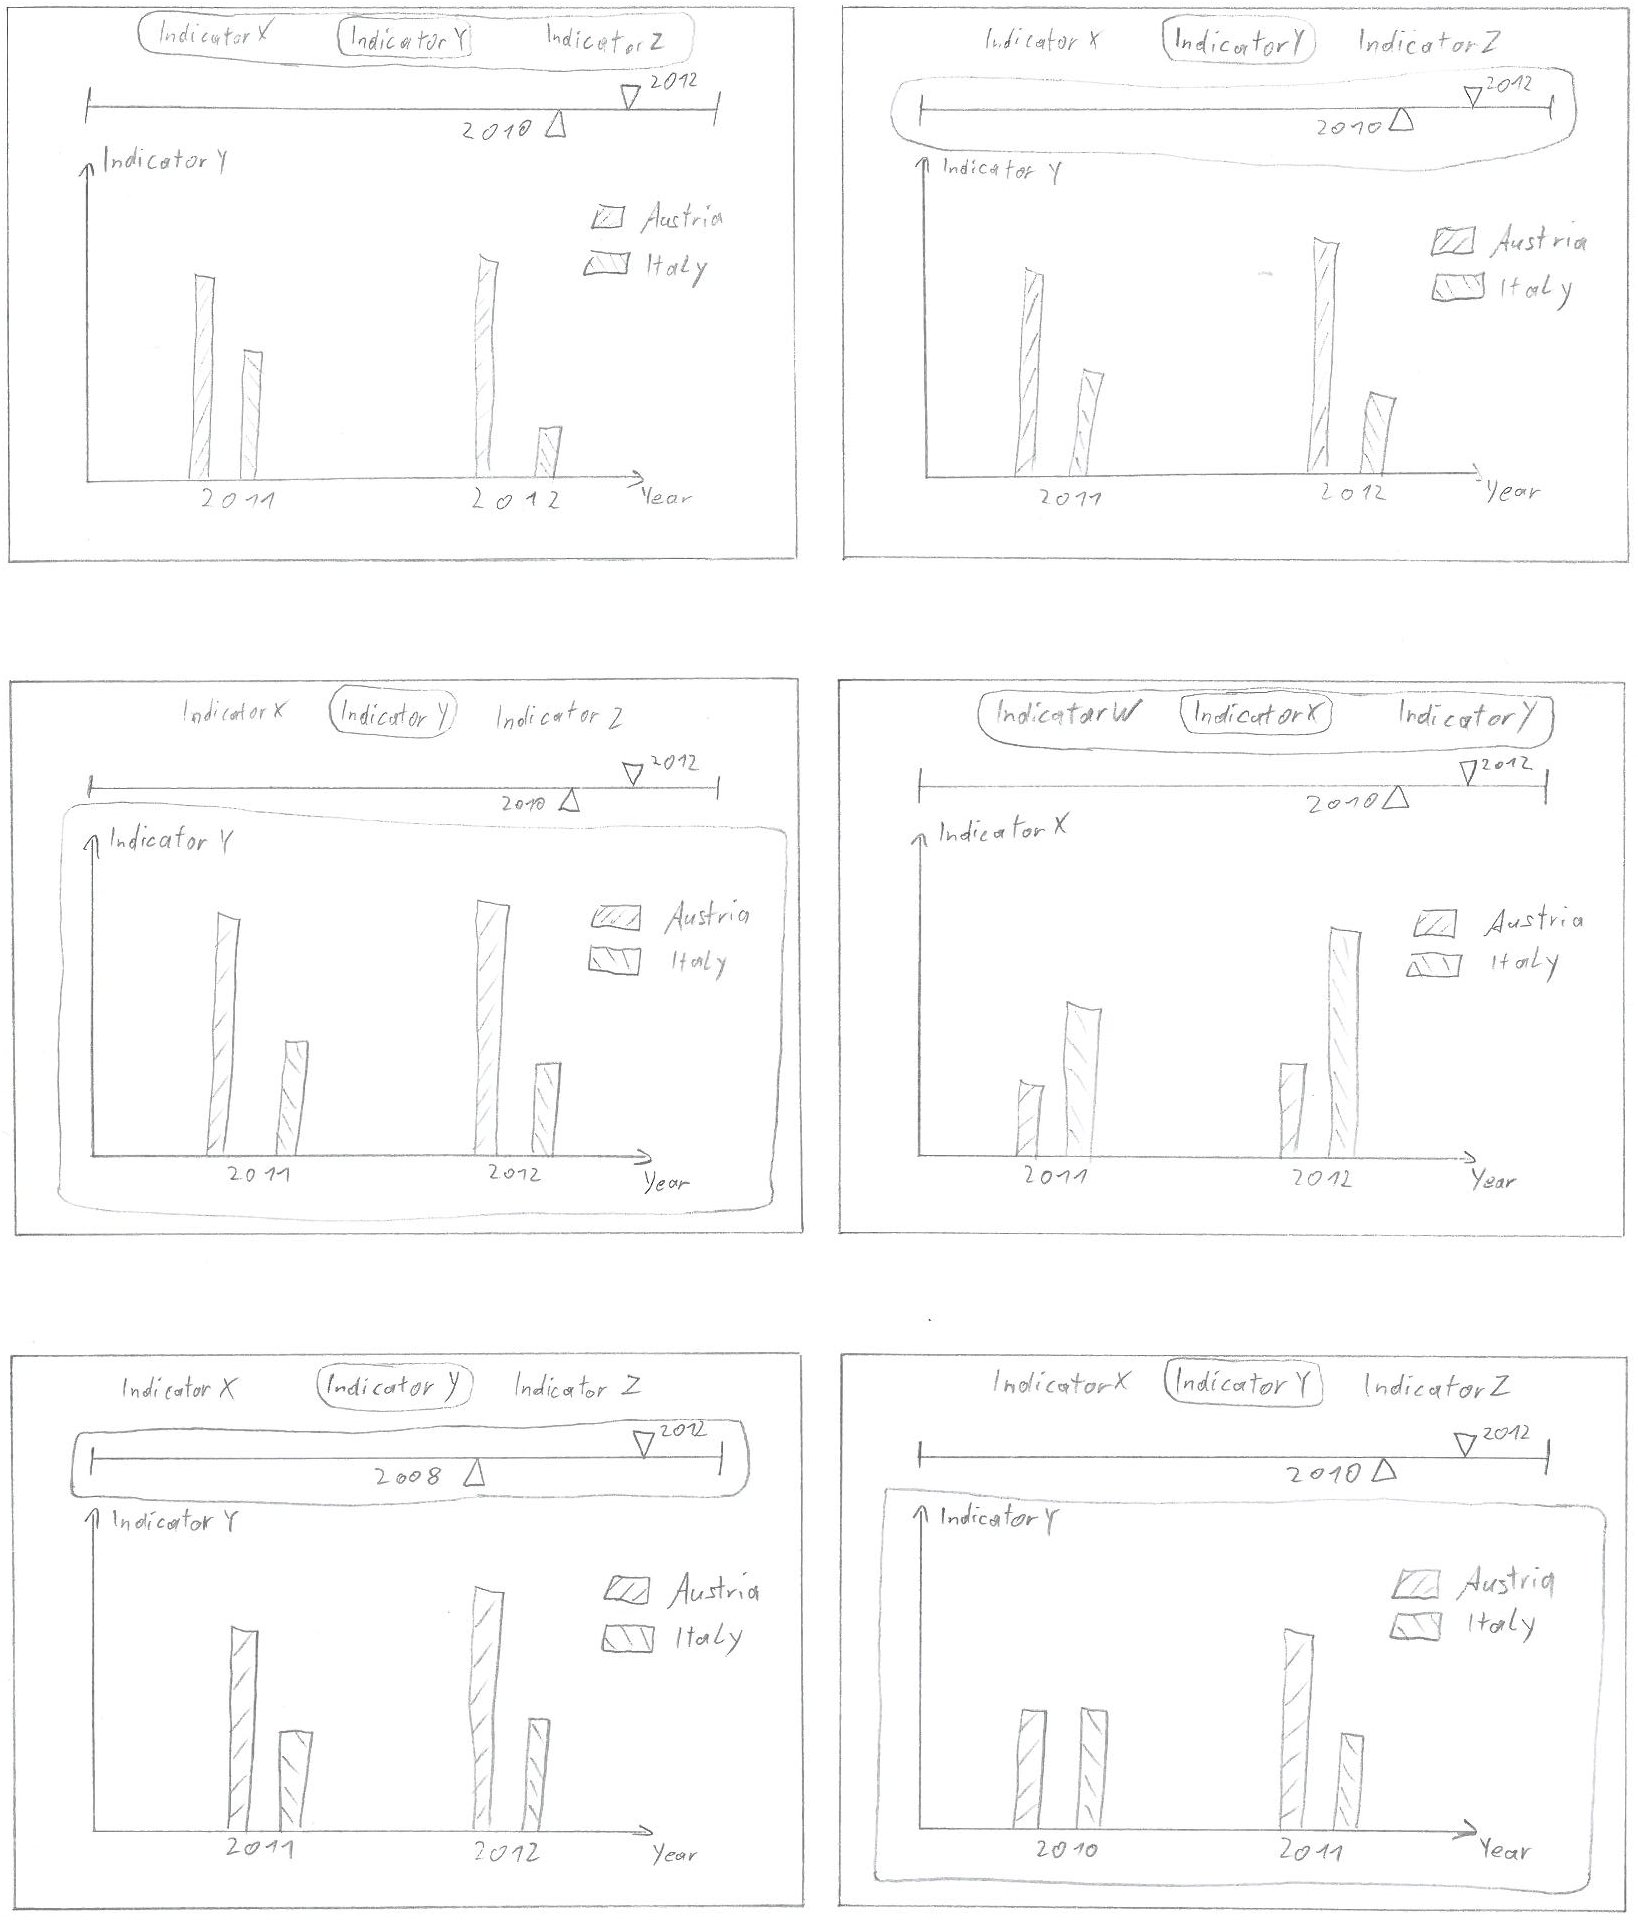 Indicator X Indicator Y Indicator Z
2012
2010
Indicator Y
Austria
Italy
2011 2012 Year
Indicator X Indicator Y Indicator Z
2012
2010
Indicator Y
Austria
Italy
2011 2012 Year
Indicator X Indicator Y Indicator Z
2012
2010
Indicator Y
Austria
Italy
2011 2012 Year
Indicator W Indicator X Indicator Y
2012
2010
Indicator X
Austria
Italy
2011 2012 Year
Indicator X Indicator Y Indicator Z
2012
2008
Indicator Y
Austria
Italy
2011 2012 Year
Indicator X Indicator Y Indicator Z
2012
2010
Indicator Y
Austria
Italy
2010 2011 Year